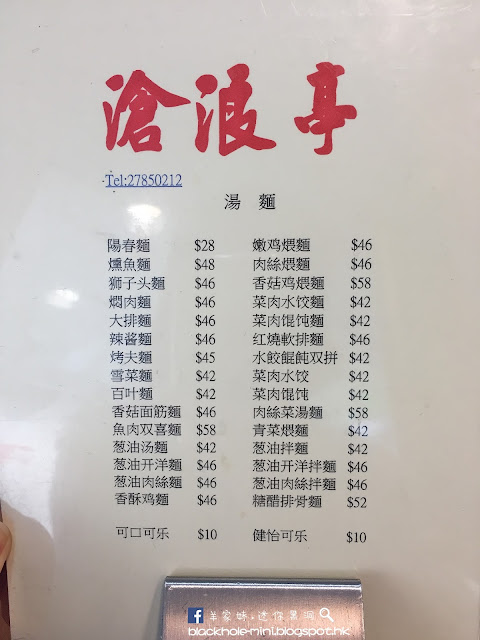 滄浪亭
Tel:27850212
湯 麵
陽春麵 $28 嫩鸡煨麵 $46
燻魚麵 $48 肉絲煨麵 $46
獅子头麵 $46 香菇鸡煨麵 $58
燜肉麵 $46 菜肉水饺麵 $42
大排麵 $46 菜肉馄饨麵 $42
辣酱麵 $46 红燒軟排麵 $46
烤夫麵 $45 水餃餛飩双拼 $42
雪菜麵 $42 菜肉水饺 $42
百叶麵 $42 菜肉馄饨 $42
香菇面筋麵 $46 肉絲菜湯麵 $58
魚肉双喜麵 $58 青菜煨麵 $42
葱油汤麵 $42 葱油拌麵 $42
葱油开洋麵 $46 葱油开洋拌麵 $46
葱油肉絲麵 $46 葱油肉絲拌麵 $46
香酥鸡麵 $46 糖醋排骨麵 $52
可口可乐 $10 健怡可乐 $10
羊家妹.迷你黑洞
blackhole-mini.blogspot.hk